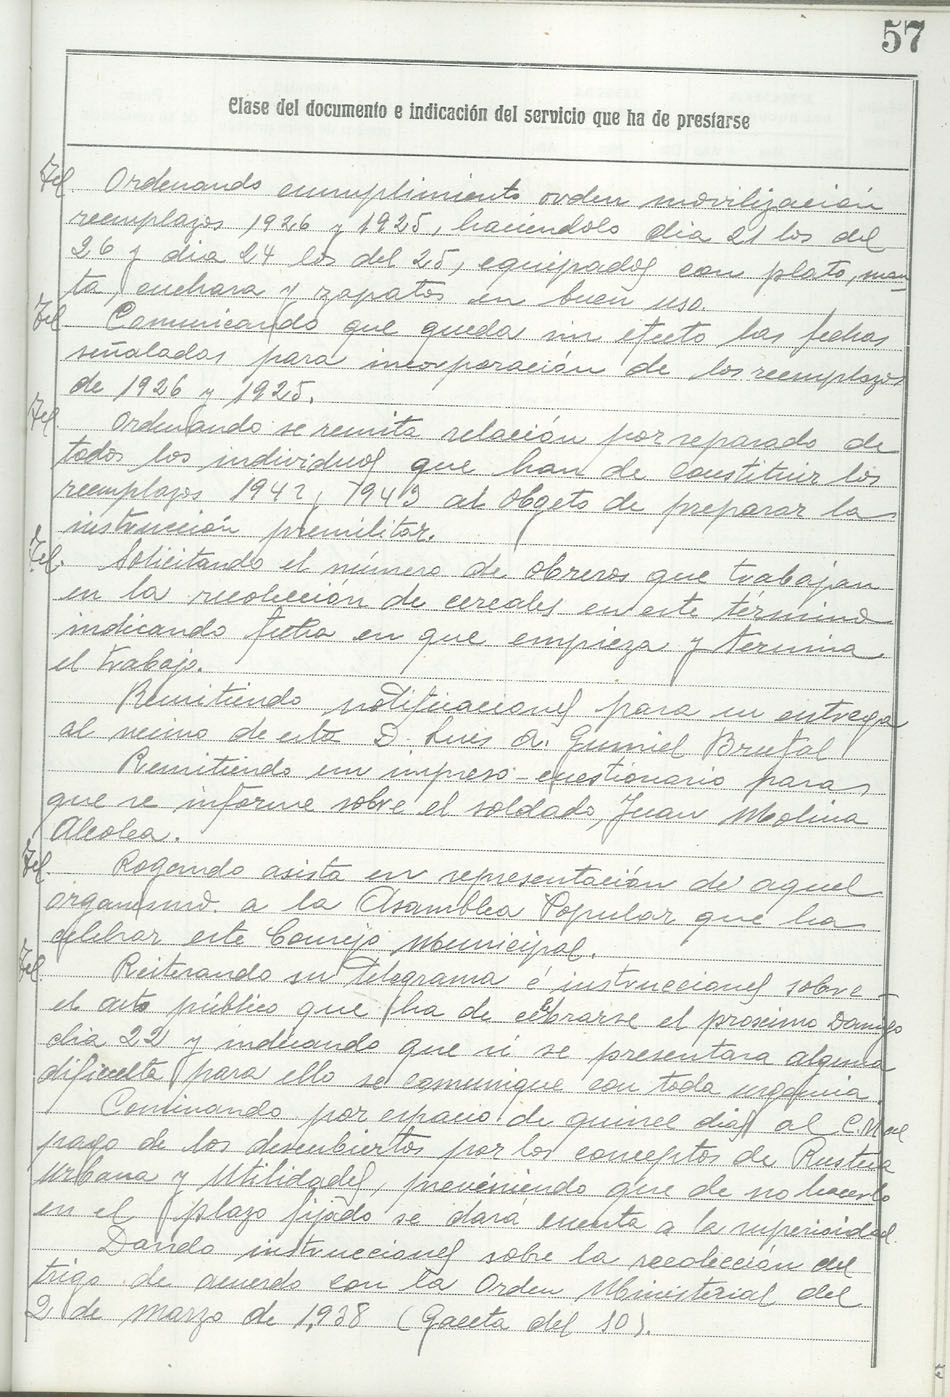 57
Clase del documento e indicación del servicio que ha de prestarse
Tel. Ordenando cumplimiento orden movilización
reemplazos 1926 y 1925, haciéndolo dia 21 los del
26 y dia 24 los del 25, equipados con plato, man
ta, cuchara y zapatos en buen uso.
Tel Comunicando que queda sin efecto las fechas
señaladas para incorporación de los reemplazos
de 1926 y 1925.
Tel. Ordenando se remita relación por separado de
todos los individuos que han de constituir los
reemplazos 1942, 1943 al objeto de preparar la
instrucción premilitar.
Tel. Solicitando el número de obreros que trabajan
en la recolección de cereales en este término
indicando fecha en que empieza y termina
el trabajo.
Remitiendo notificaciones para su entrega
al vecino de esta D. Luis A. Gumiel Brutal
Remitiendo un impreso-cuestionario para
que se informe sobre el soldado, Juan Molina
Alcolea.
Tel. Rogando asista en representación de aquel
organismo. a la Asamblea Popular que ha
celebrar este Consejo Municipal.
Tel. Reiterando su telegrama é instrucciones sobre
el acto público que ha de celebrarse el proximo Domingo
dia 22 y indicando que si se presentara alguna
dificulta para ello se comunique con toda urgencia.
Conminando por espacio de quince dias al C.M. el
pago de los descubiertos por los conceptos de Rustica
Urbana y Utilidades, previniendo que de no hacerlo
en el plazo fijado se dará cuenta a la superioridad.
Dando instrucciones sobre la recolección del
trigo de acuerdo con la Orden Ministerial del
2 de marzo de 1,938 (Gaceta del 10).